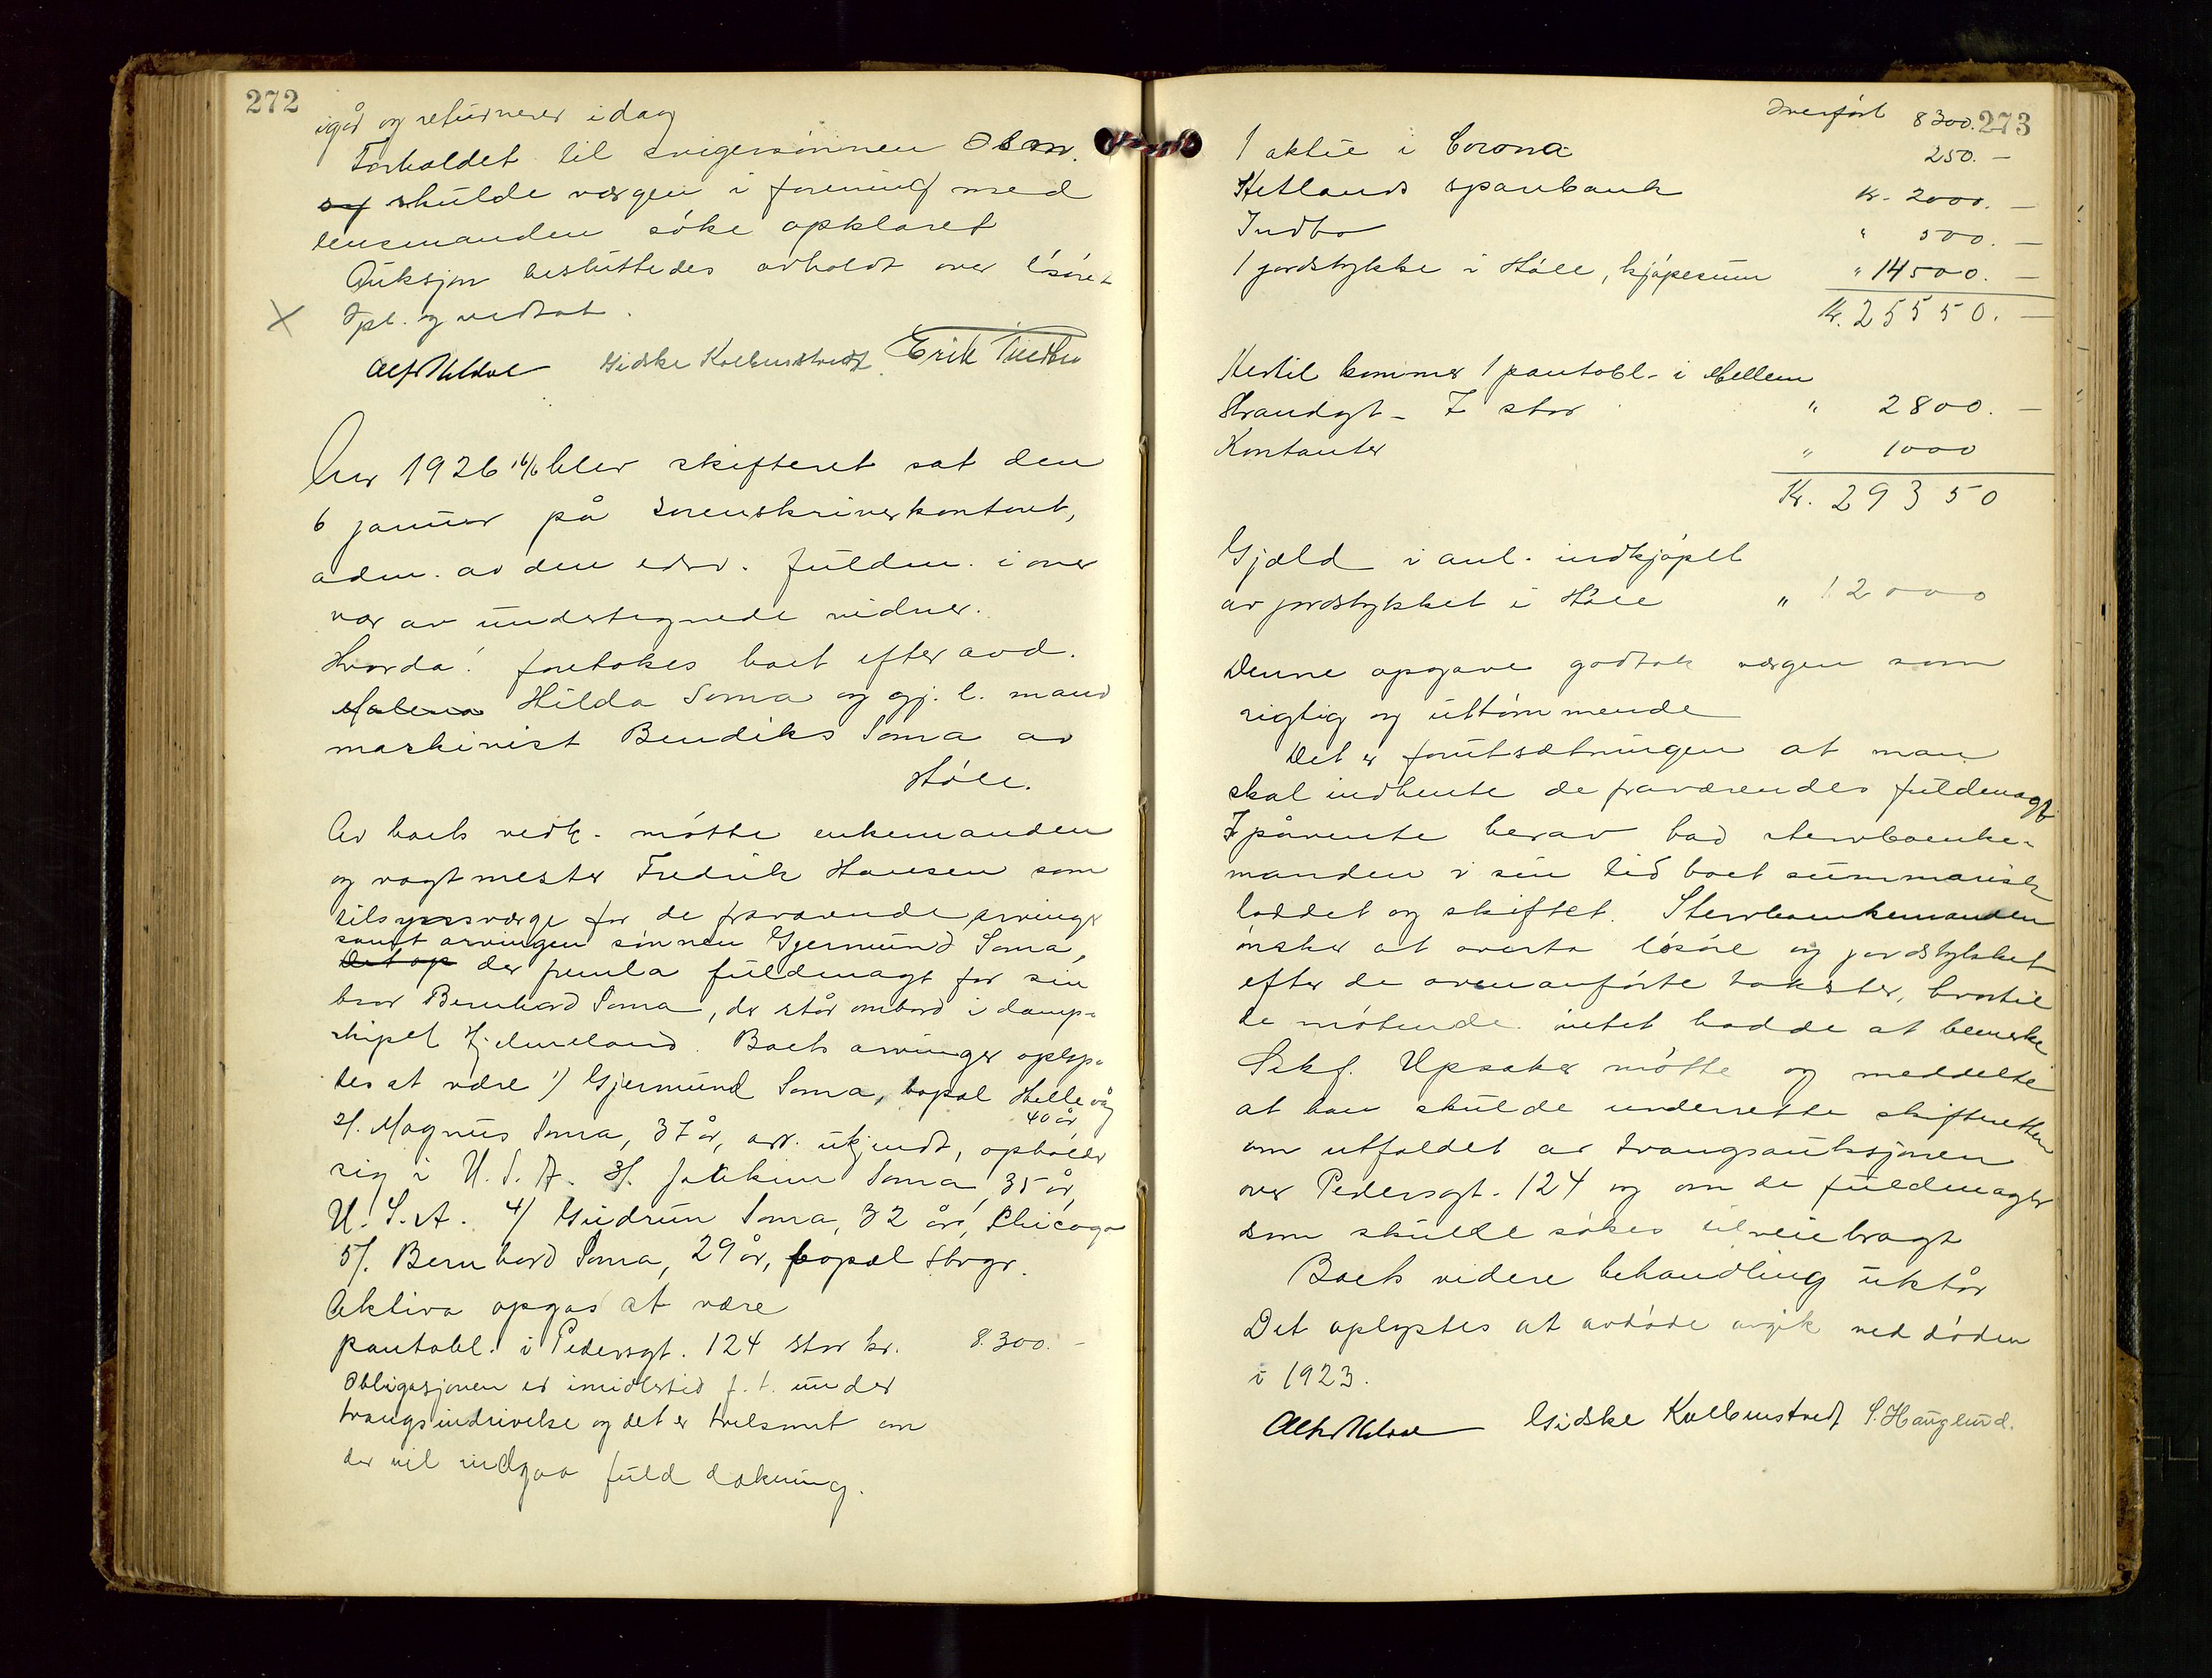 272
igår og returnerer idag
Forholdet til svigersønnen Olsen.
og skulde vergen i forening med
lensmanden søke opklaret
Auksjon besluttedes avholdt over løsøret
Opl. og vedtat.
Gidske Kolbenstvedt Erik
Aar 1926 16/6 blev skifteret sat den
6 januar på sorenskriverkontoret,
adm. av den edsv. fuldm. i over
vær av undertegnede vidner.
Hvorda: foretokes boet efter avd.
Malena Hilda Soma og gj. l. mand
maskinist Bendiks Soma av
Høle.
Av boets vedk. møtte enkemanden
og vagtmester Fredrik Hansen som
tilsynsværge for de fraværende arvinger
samt arvingen sønnen Gjermund Soma,
Det op der fremla fuldmagt for sin
bror Bernhard Soma, der står ombord i damp-
skipet Hjelmeland. Boets arvinger oplys-
tes at være 1/ Gjermund Soma, bopæl Hellevåg
40 år
2/. Magnus Soma, 37 år, adr. ukjendt, opholder
sig i U.S.A. 3/. Joakim Soma, 35 år,
U.S.A. 4/ Gudrun Soma, 32 år, Chicago
5/. Bernhard Soma, 29 år, bopæl Stvgr.
Aktiva opgas at være
pantobl. i Pedersgt. 124 stor kr. 8.300.-
Obligasjonen er imidlertid f. t. under
tvangsindrivelse og det er tvilsomt om
der vil indgaa fuld dækning.
273
Overført 8300.
1 aktie i Corona 250.-
Hetlands sparebank Kr. 2000.-
Indbo " 500.-
1 jordstykke i Høle, kjøpesum " 14500.-
Kr. 25550.-
Hertil kommer 1 pantobl. i Mellem
Strandgt. 7 stor " 2800.-
Kontanter " 1000
Kr. 29350
Gjæld i anl. indkjøpet
av jordstykket i Høle " 12000
Denne opgave godtok vergen som
rigtig og uttømmende
Det er forutsætningen at man
skal indhente de fraværendes fuldmagt
I påvente herav bad stervboenke-
manden i sin tid boet summarisk
loddet og skiftet. Stervboenkemanden
ønsker at overta løsøre og jordstykket
efter de ovenanførte takster, hvortil
de møtende intet hadde at bemerke
Sakf. Upsaker møtte og meddelte
at han skulde underrette skifteretten
om utfaldet av tvangsauksjonen
over Pedersgt. 124 og om de fuldmagter
som skulle søkes tilveiebragt
Boets videre behandling utstår
Det oplystes at avdøde avgik ved døden
i 1923.
Gidske Kolbenstvedt S. Hauglund.